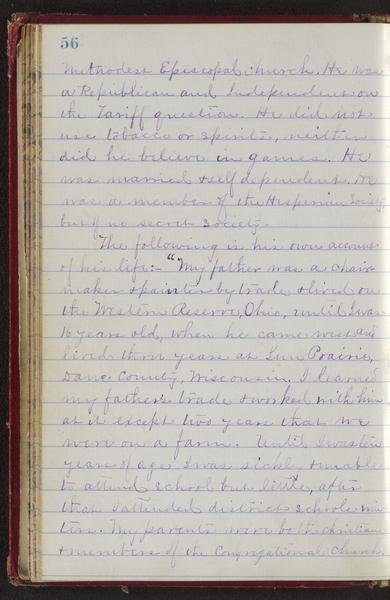 56
Methodist Episcopal church. He was
a Republican and Independent on
the Tariff question. He did not
use tobacco or spirits, neither
did he believe in games. He
was married & self dependent. He
was a member of the Hesperian Society
but of no secret society.
The following is his own account
of his life:- "My father was a chair-
maker & painter by trade & lived on
the Western Reserve, Ohio, until I was
16 years old, when he came west and
lived three years at Sun Prairie,
Dane County, Wisconsin. I learned
my father's trade & worked with him
at it except two years that we
were on a farm. Until I was ten
years of age I was sickly & unable
to attend school but little, after
that I attended district schools win-
ters. My parents were both christians
& members of the Congregational church.